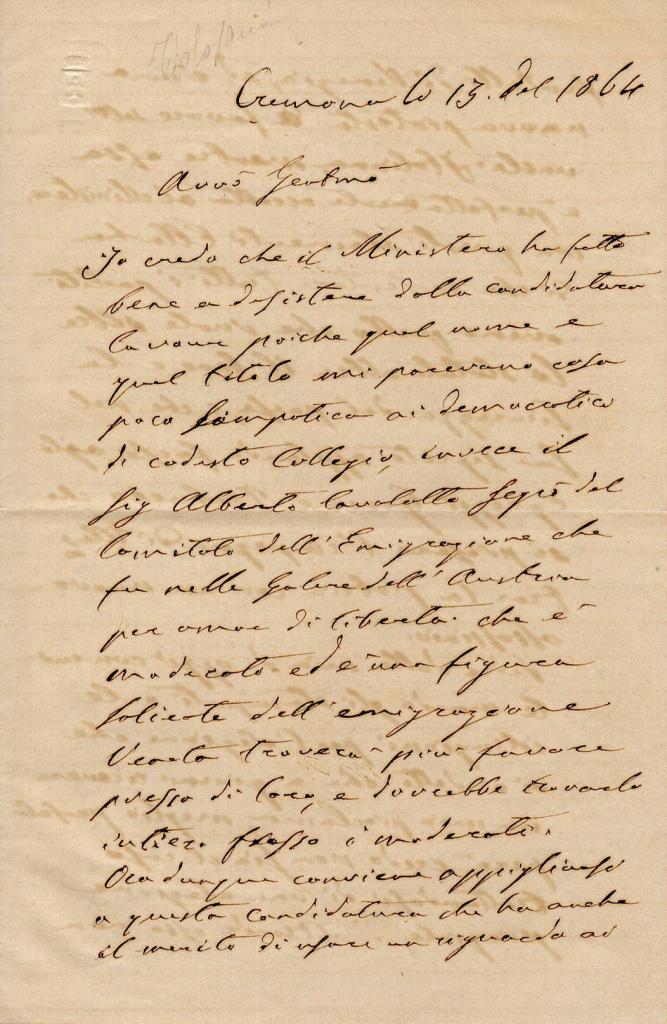 Cremona lo 13. del 1864
Avvo Gentmo
Io credo che il Ministero ha fatto
bene a desistere dalla candidatura
Cavour poiche quel nome e
quel titolo mi parevano cosa
poco simpatica ai democratici
di codesto Collegio, invece il
Sig Alberto Cavaletto Segro del
Comitato dell'Emigrazione che
fu nelle Galere dell'Austria
per amor di liberta. che e'
moderato ed e' una figura
saliente dell'emigrazione
Veneta trovera' piu' favore
presso di loro, e dovrebbe trovarlo
intiero presso i moderati.
Ora dunque conviene appigliarsi
a questa candidatura che ha anche
il merito di usare un riguardo ai